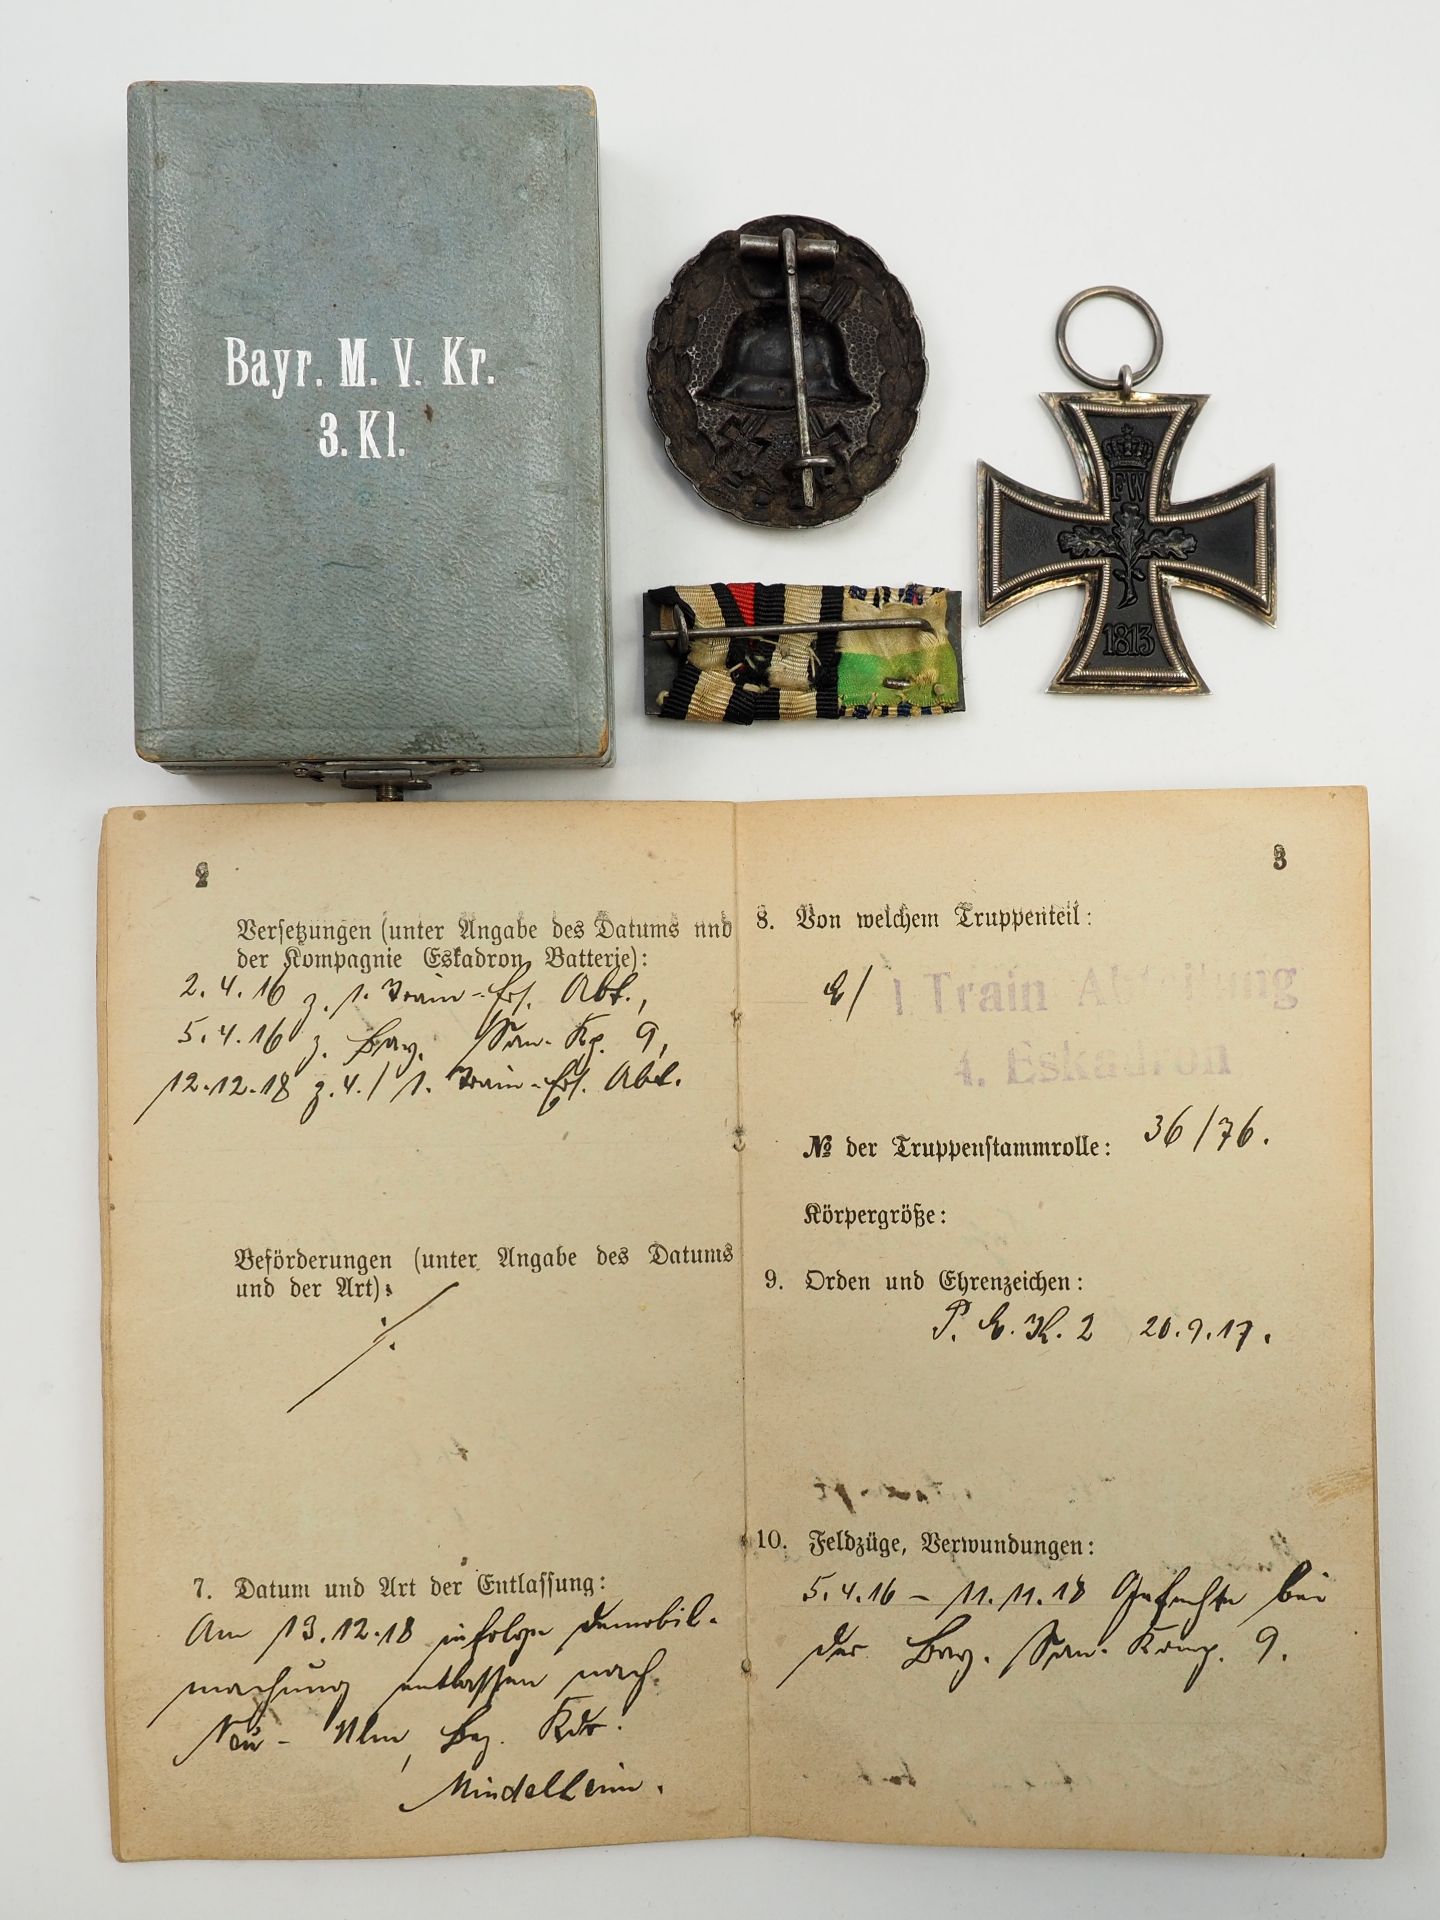 Bayr. M. V. Kr.
3. Kl.
FW
1813
2
Versetzungen (unter Angabe des Datums und
der Kompagnie Eskadron Batterie):
2.4.16 z. 1. Train-Ers. Abt.,
5.4.16 z. Bay. San. Kp. 9,
12.12.18 z. 4./1. Train-Ers. Abt.
Beförderungen (unter Angabe des Datums
und der Art):
7. Datum und Art der Entlassung:
Am 13.12.18 infolge Demobil-
machung entlassen nach
Neu-Ulm, Bez. Kdo.
Mindelheim.
3
8. Von welchem Truppenteil:
E/ 1 Train Abteilung
4. Eskadron
No der Truppenstammrolle: 36/76.
Körpergröße:
9. Orden und Ehrenzeichen:
P. E. K. 2 20.9.17.
10. Feldzüge, Verwundungen:
5.4.16 – 11.11.18 Gefechte bei
der Bay. San. Komp. 9.